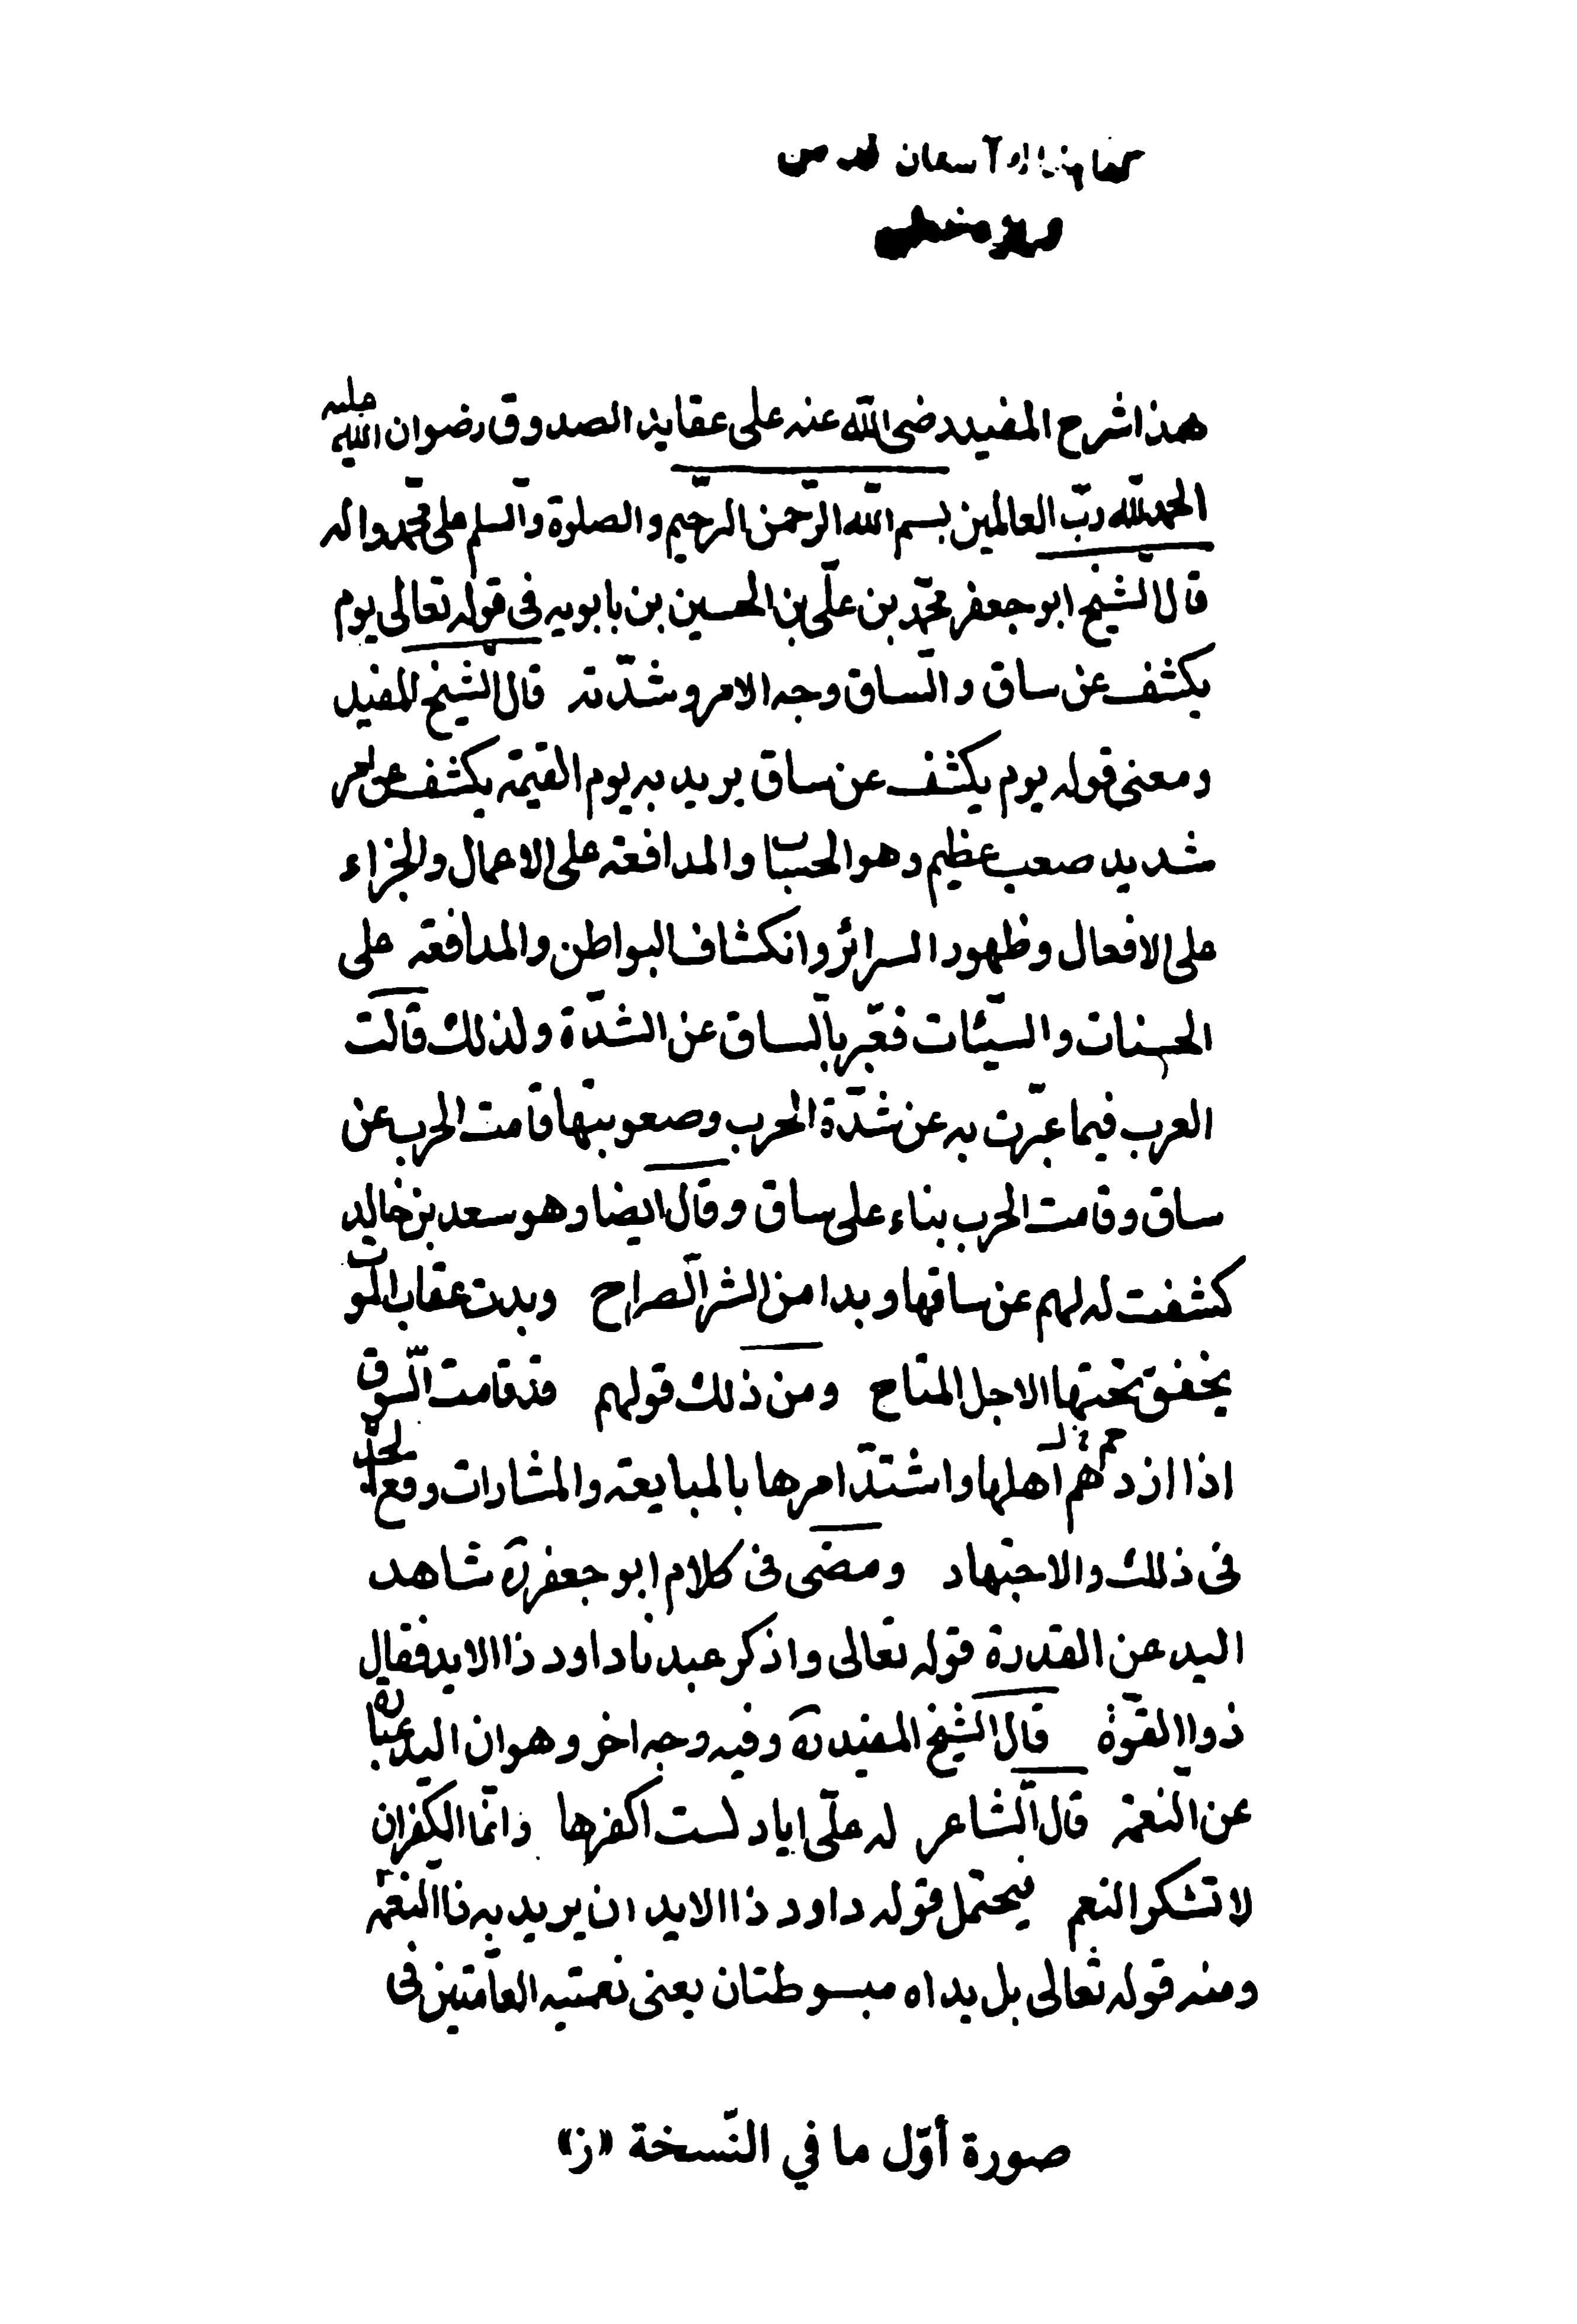 كتابخانه آستان قدس
هذا شرح المفيد رضى الله عنه على عقايد الصدوق رضوان الله عليه
الحمد لله ربّ العالمين بسم الله الرّحمن الرّحيم والصلوة والسّلم على محمّد واله
قال الشّيخ ابو جعفر محمّد بن علّى بن الحسين بن بابويه فى قوله تعالى يوم
يكشف عن ساق والسّاق وجه الامر وشدّته قال الشّيخ المفيد
ومعنى قوله يوم يكشف عن ساق يريد به يوم القيمة يكشف عن امر
شديد صعب عظيم وهو الحساب والمدافعة على الاعمال والجزاء
على الافعال وظهور السرائر وانكشاف البواطن والمدافعة على
الحسنات والسيّئات فعبّر بالسّاق عن الشدّة ولذلك قالت
العرب فيما عبّرت به عن شدّة الحرب وصعوبتها قامت الحرب عن
ساق وقامت الحرب بناء على ساق وقال ايضا وهو سعد بن خالد
كشفت له لهم عن ساقها وبدا من الشر الصّراح وبدت عقاب الموت
يخفق تحتها الاجل المتاح ومن ذلك قولهم قد قامت السّوق
اذا ازدهم اهلها واشتدّ امرها بالمبايعة والمشارات وقع الجدّ
فى ذلك والاجتهاد ومضى فى كلام ابو جعفر ره شاهد
اليد عن القدرة قوله تعالى واذكر عبدنا داود ذا الايد فقال
ذوا القوّة قال الشّيخ المفيد ره وفيه وجه اخر وهو ان اليد عبارة
عن النّعمة قال الشّاعر له علّى اياد لست اكفرها وانّما الكفران
لا تشكر النعم فيحتمل قوله داود ذا الايد ان يريد به ذا النّعمة
ومنه قوله تعالى بل يداه مبسوطتان يعنى نعمتيه العامّتين فى
صورة أوّل ما في النّسخة «ز»